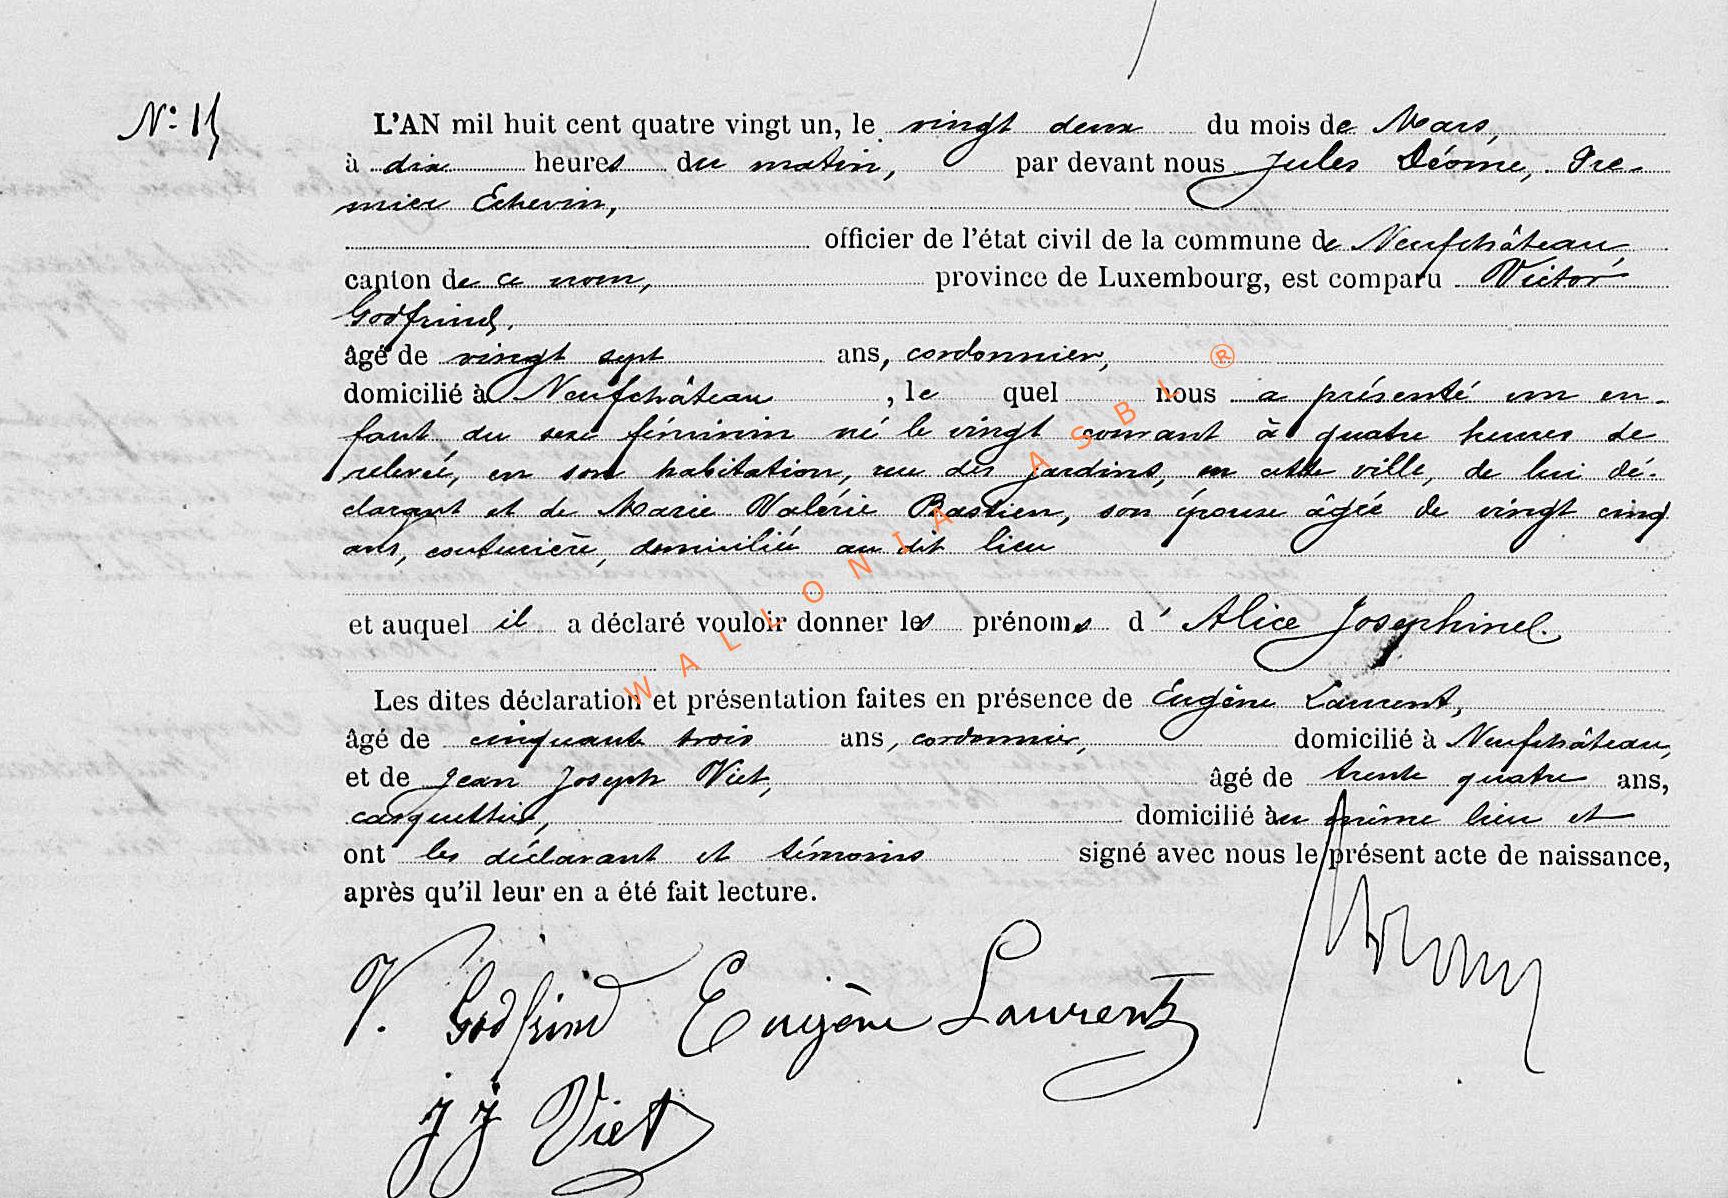 N° 15
L'AN mil huit cent quatre vingt un, le vingt deux du mois de Mars,
à dix heures du matin, par devant nous Jules Déome, Pre-
mier Echevin,
officier de l'état civil de la commune de Neufchâteau,
canton de ce nom, province de Luxembourg, est comparu Victor
Godfrind,
âgé de vingt sept ans, cordonnier,
domicilié à Neufchâteau, le quel nous a présenté un en-
fant du sexe féminin né le vingt courant à quatre heures de
relevée, en son habitation, rue des jardins, en cette ville, de lui dé-
clarant et de Marie Valérie Bastien, son épouse âgée de vingt cinq
ans, couturière, domiciliée au dit lieu
et auquel il a déclaré vouloir donner les prénoms d'Alice Josephine.
Les dites déclaration et présentation faites en présence de Eugène Laurent,
âgé de cinquante trois ans, cordonnier, domicilié à Neufchâteau,
et de Jean Joseph Viet, âgé de trente quatre ans,
casquettier, domicilié au même lieu et
ont les déclarant et témoins signé avec nous le présent acte de naissance,
après qu'il leur en a été fait lecture.
V. Godfrind Eugène Laurent
J J Viet
WALLONIA ASBL ®